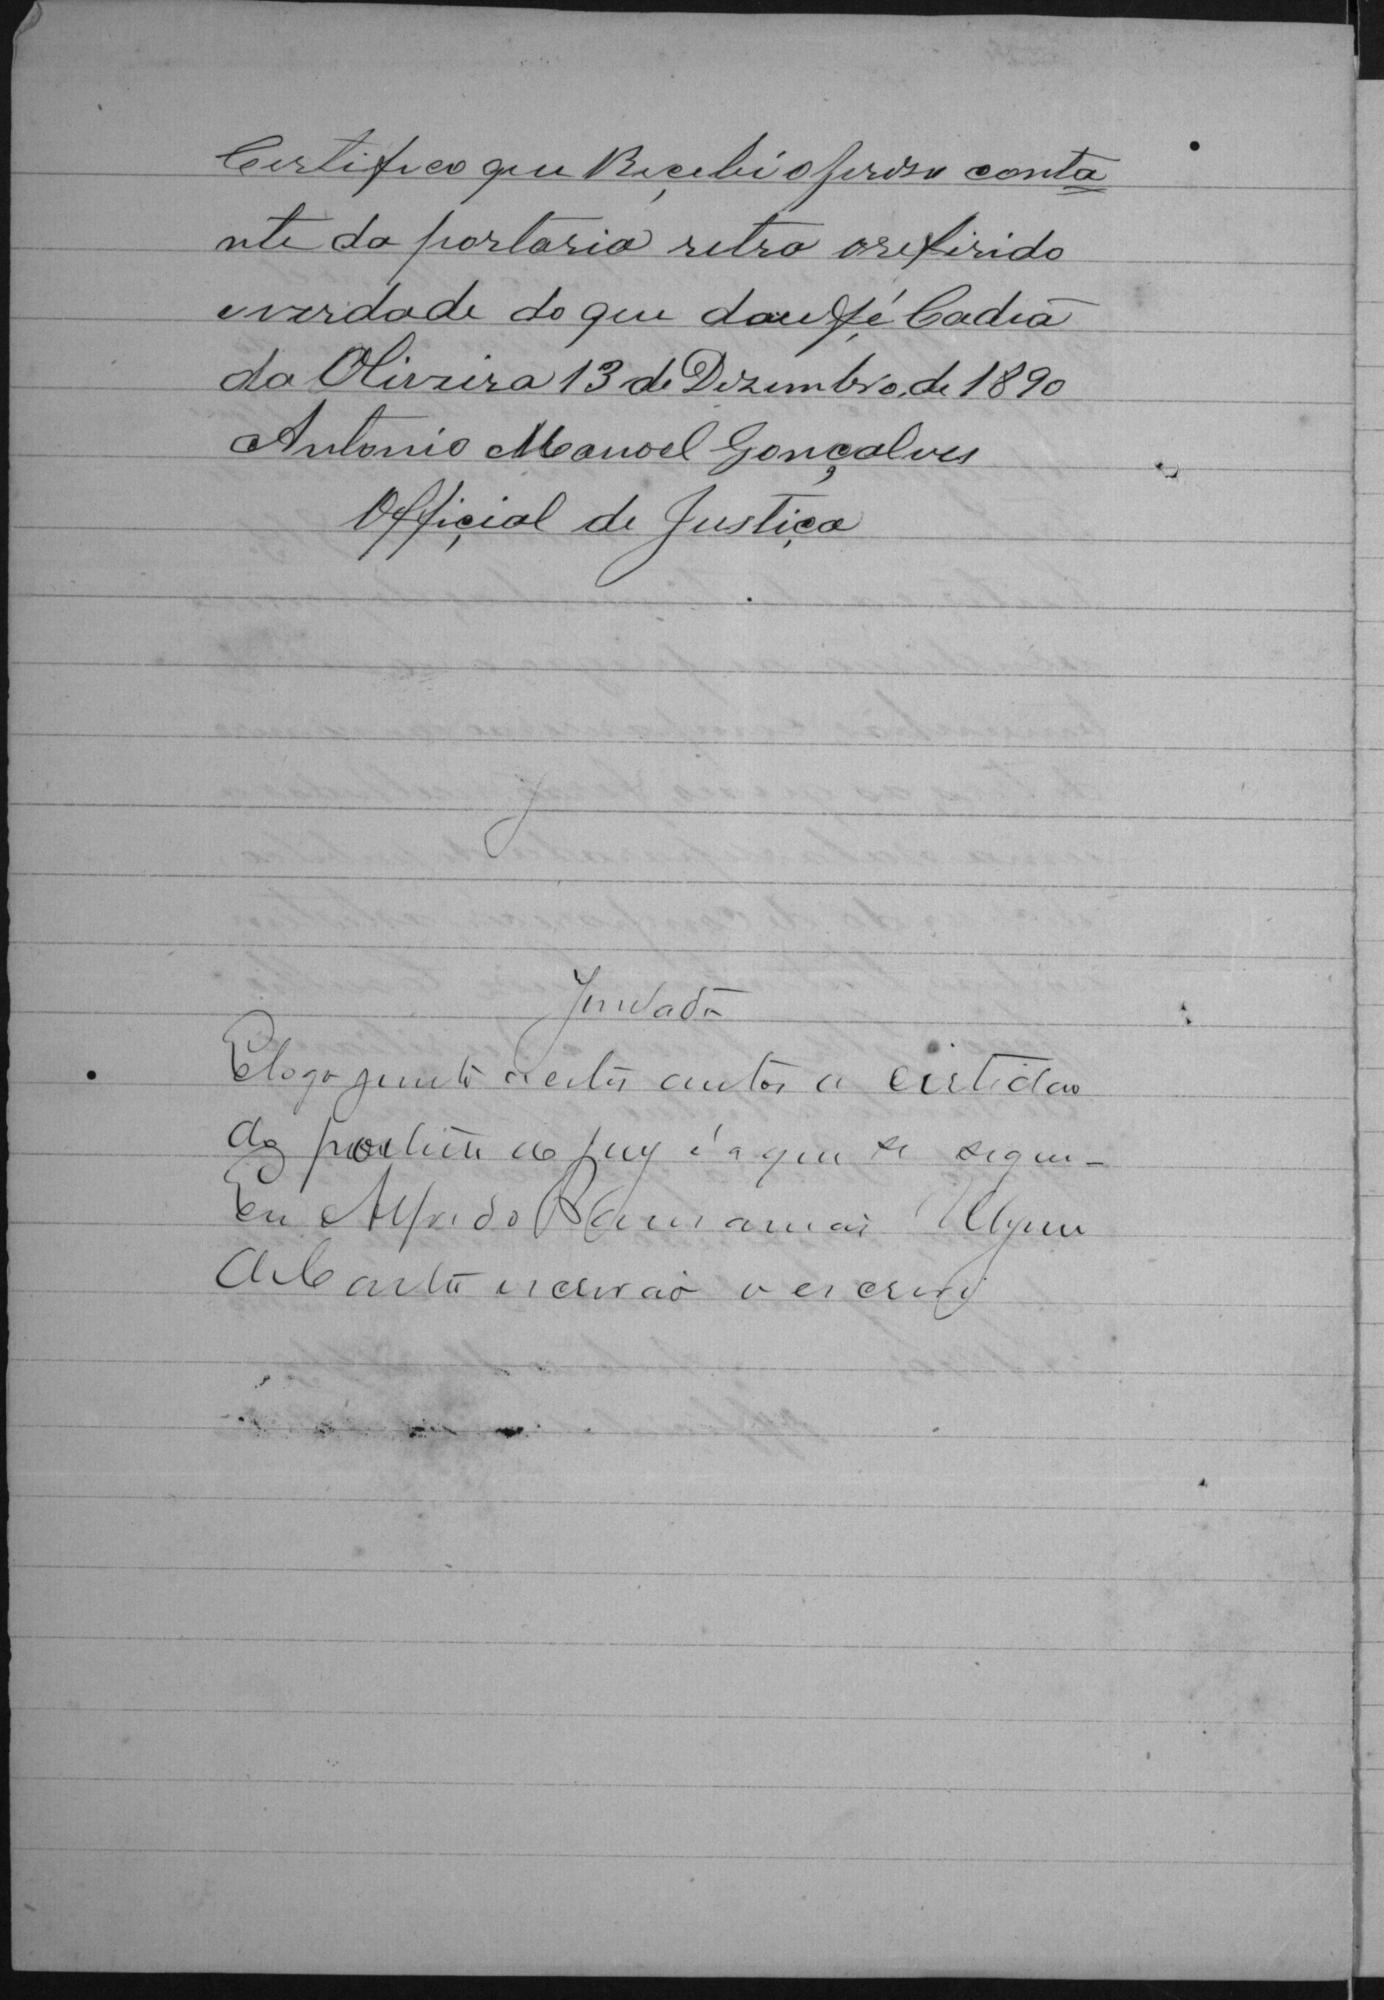 Certifico que Reçebi o prezo conta
nte da portaria retro o refirido
e verdade do que dou fé Cadea
da Oliveira 13 de Dezembro de 1890
Antonio Manoel Gonçalves
Offiçial de Justiça
Juntada
E logo junto a estes autos a certidão
da
é a que se segue
Eu Alfredo
de Castro escrivão o escrevi